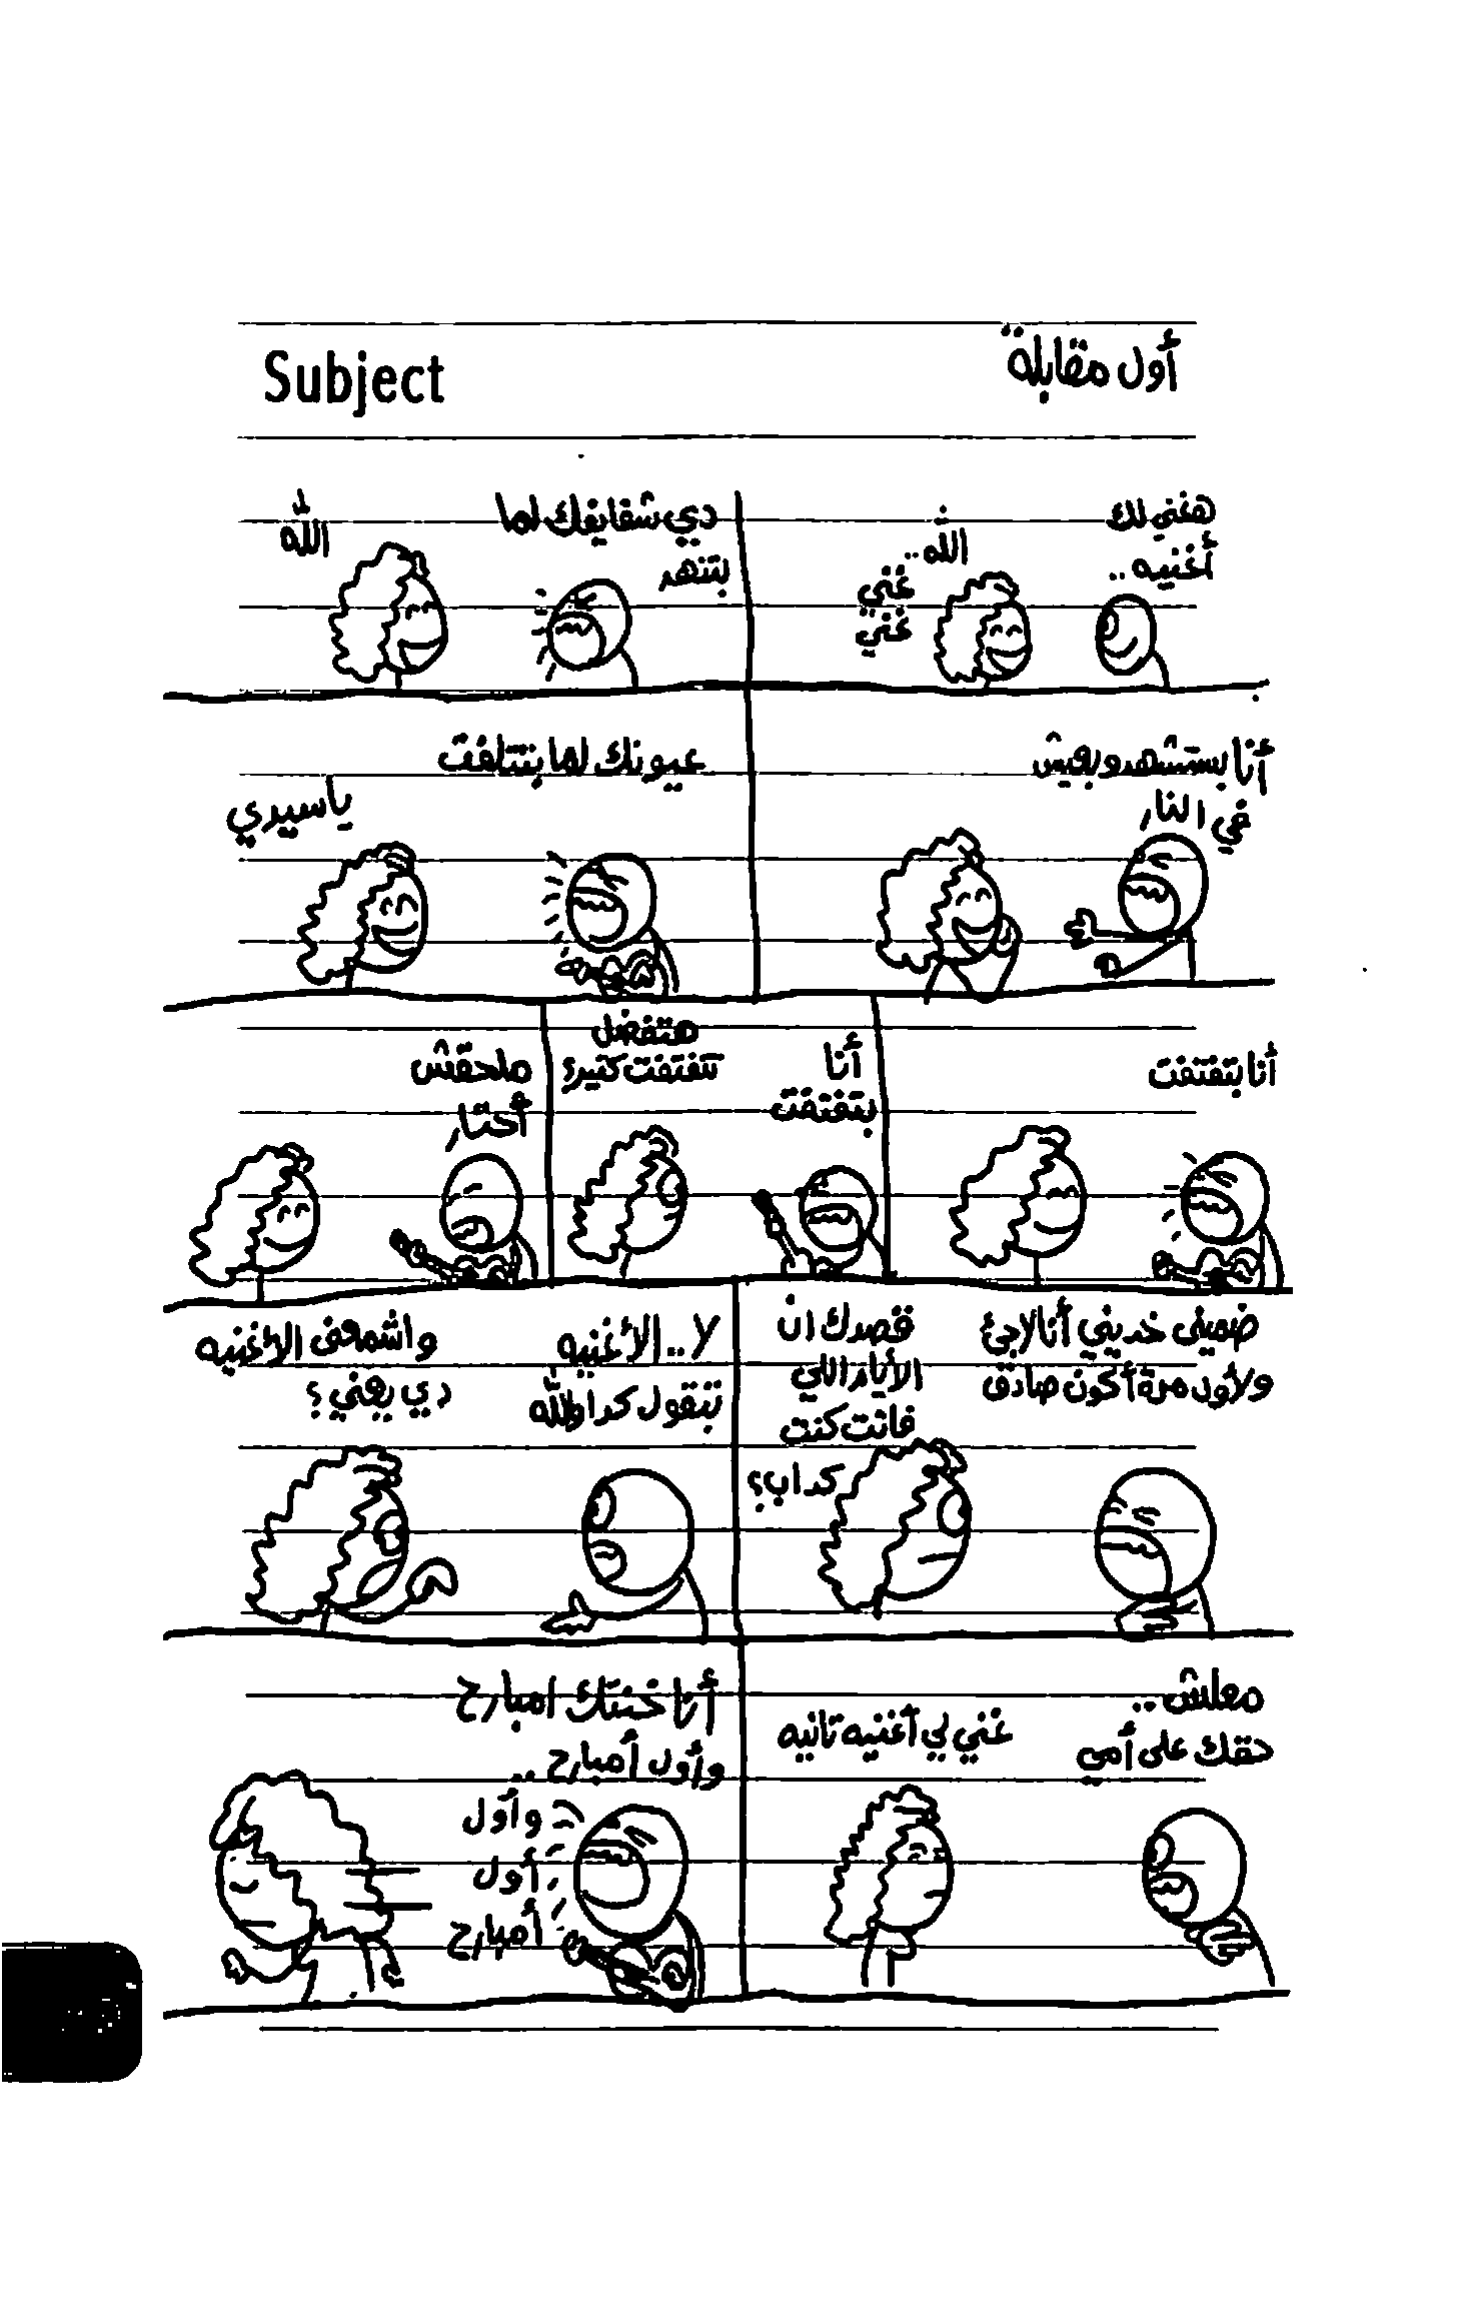 أول مقابلة
Subject
هغني لك
أغنيه ..
الله ..
غني
غني
دي شفايفك لما
بتنهد
الله
أنا بستشهد وبعيش
في النار
عيونك لما بتتلفت
يا سيدي
أنا بتفتفت
أنا
بتفتفت
هتفضل
تتفتفت كتير؟
ملحقش
أختار
ضميني خديني أنا لاجئ
ولأول مرة أكون صادق
قصدك ان
الأيام اللي
فاتت كنت
كداب؟
لا .. الأغنيه
بتقول كدا والله
واشمعنى الأغنيه
دي يعني؟
معلش ..
حقك على أمي
غني لي أغنيه تانيه
أنا خنتك امبارح
وأول أمبارح ..
وأول
أول
أمبارح